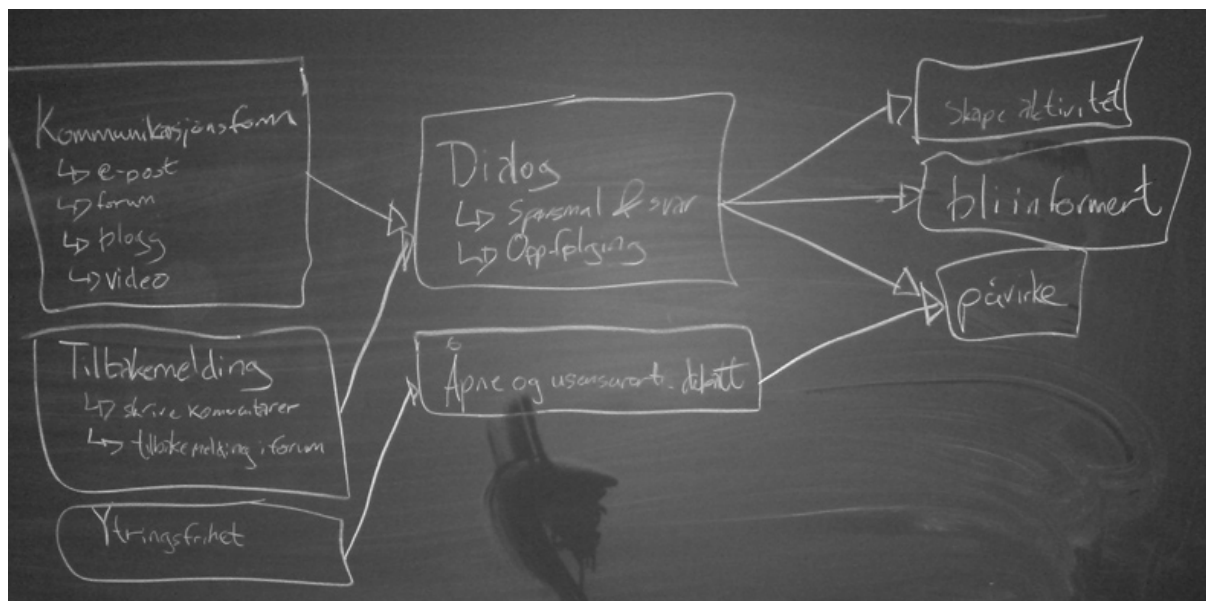 Kommunikasjonsform
↳ e-post
↳ forum
↳ blogg
↳ video
Tilbakemelding
↳ skrive komentarer
↳ tilbakemelding i forum
Ytringsfrihet
Dialog
↳ Spørsmål & svar
↳ Oppfølging
Åpne og usensurert debatt
skape aktivitet
bli informert
påvirke